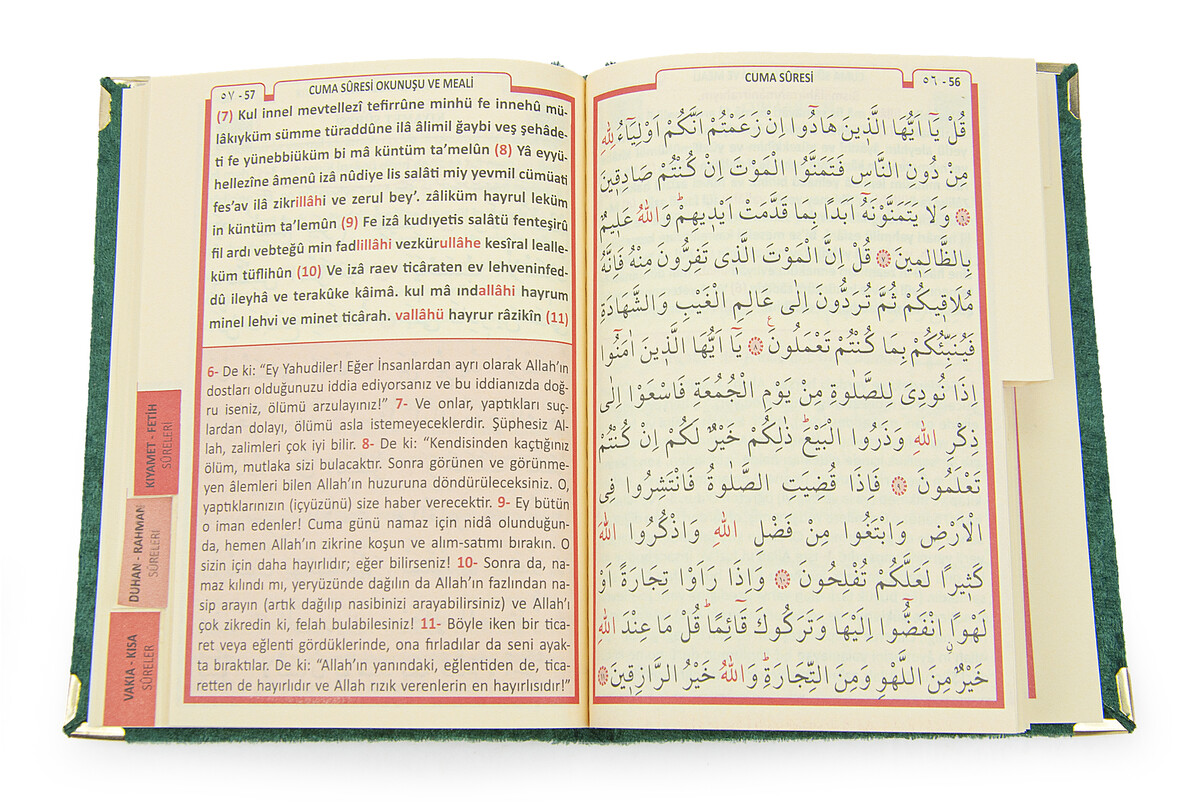 CUMA SÛRESİ
٥٦ - 56
قُلْ يَٓا اَيُّهَا الَّذ۪ينَ هَادُٓوا اِنْ زَعَمْتُمْ اَنَّكُمْ اَوْلِيَٓاءُ لِلّٰهِ
مِنْ دُونِ النَّاسِ فَتَمَنَّوُا الْمَوْتَ اِنْ كُنْتُمْ صَادِق۪ينَ
﴿٦﴾ وَلَا يَتَمَنَّوْنَهُٓ اَبَدًا بِمَا قَدَّمَتْ اَيْد۪يهِمْۜ وَاللّٰهُ عَل۪يمٌ
بِالظَّالِم۪ينَ ﴿٧﴾ قُلْ اِنَّ الْمَوْتَ الَّذ۪ي تَفِرُّونَ مِنْهُ فَاِنَّهُ
مُلَاق۪يكُمْ ثُمَّ تُرَدُّونَ اِلٰى عَالِمِ الْغَيْبِ وَالشَّهَادَةِ
فَيُنَبِّئُكُمْ بِمَا كُنْتُمْ تَعْمَلُونَ ﴿٨﴾ يَٓا اَيُّهَا الَّذ۪ينَ اٰمَنُٓوا
اِذَا نُودِيَ لِلصَّلٰوةِ مِنْ يَوْمِ الْجُمُعَةِ فَاسْعَوْا اِلٰى
ذِكْرِ اللّٰهِ وَذَرُوا الْبَيْعَۜ ذٰلِكُمْ خَيْرٌ لَكُمْ اِنْ كُنْتُمْ
تَعْلَمُونَ ﴿٩﴾ فَاِذَا قُضِيَتِ الصَّلٰوةُ فَانْتَشِرُوا فِي
الْاَرْضِ وَابْتَغُوا مِنْ فَضْلِ اللّٰهِ وَاذْكُرُوا اللّٰهَ
كَث۪يرًا لَعَلَّكُمْ تُفْلِحُونَ ﴿١٠﴾ وَاِذَا رَاَوْا تِجَارَةً اَوْ
لَهْوًاۨ انْفَضُّٓوا اِلَيْهَا وَتَرَكُوكَ قَٓائِمًاۜ قُلْ مَا عِنْدَ اللّٰهِ
خَيْرٌ مِنَ اللَّهْوِ وَمِنَ التِّجَارَةِۜ وَاللّٰهُ خَيْرُ الرَّازِق۪ينَ ﴿١١﴾
٥٧ - 57
CUMA SÛRESİ OKUNUŞU VE MEALİ
(7) Kul innel mevtellezî tefirrûne minhü fe innehû mü-
lâkıyküm sümme türaddûne ilâ âlimil ğaybi veş şehâde-
ti fe yünebbiüküm bi mâ küntüm ta’melûn (8) Yâ eyyü-
hellezîne âmenû izâ nûdiye lis salâti miy yevmil cümüati
fes’av ilâ zikrillâhi ve zerul bey’. zâliküm hayrul leküm
in küntüm ta’lemûn (9) Fe izâ kudıyetis salâtü fenteşirû
fil ardı vebteğû min fadlillâhi vezkürullâhe kesîral lealle-
küm tüflihûn (10) Ve izâ raev ticâraten ev lehveninfed-
dû ileyhâ ve terakûke kâimâ. kul mâ ındallâhi hayrum
minel lehvi ve minet ticârah. vallâhü hayrur râzikîn (11)
6- De ki: “Ey Yahudiler! Eğer İnsanlardan ayrı olarak Allah’ın
dostları olduğunuzu iddia ediyorsanız ve bu iddianızda doğ-
ru iseniz, ölümü arzulayınız!” 7- Ve onlar, yaptıkları suç-
lardan dolayı, ölümü asla istemeyeceklerdir. Şüphesiz Al-
lah, zalimleri çok iyi bilir. 8- De ki: “Kendisinden kaçtığınız
ölüm, mutlaka sizi bulacaktır. Sonra görünen ve görünme-
yen âlemleri bilen Allah’ın huzuruna döndürüleceksiniz. O,
yaptıklarınızın (içyüzünü) size haber verecektir. 9- Ey bütün
o iman edenler! Cuma günü namaz için nidâ olunduğun-
da, hemen Allah’ın zikrine koşun ve alım-satımı bırakın. O
sizin için daha hayırlıdır; eğer bilirseniz! 10- Sonra da, na-
maz kılındı mı, yeryüzünde dağılın da Allah’ın fazlından na-
sip arayın (artık dağılıp nasibinizi arayabilirsiniz) ve Allah’ı
çok zikredin ki, felah bulabilesiniz! 11- Böyle iken bir tica-
ret veya eğlenti gördüklerinde, ona fırladılar da seni ayak-
ta bıraktılar. De ki: “Allah’ın yanındaki, eğlentiden de, tica-
retten de hayırlıdır ve Allah rızık verenlerin en hayırlısıdır!”
KIYAMET - FETİH
SÛRELERİ
DUHAN - RAHMAN
SÛRELERİ
VAKIA - KISA
SÛRELER